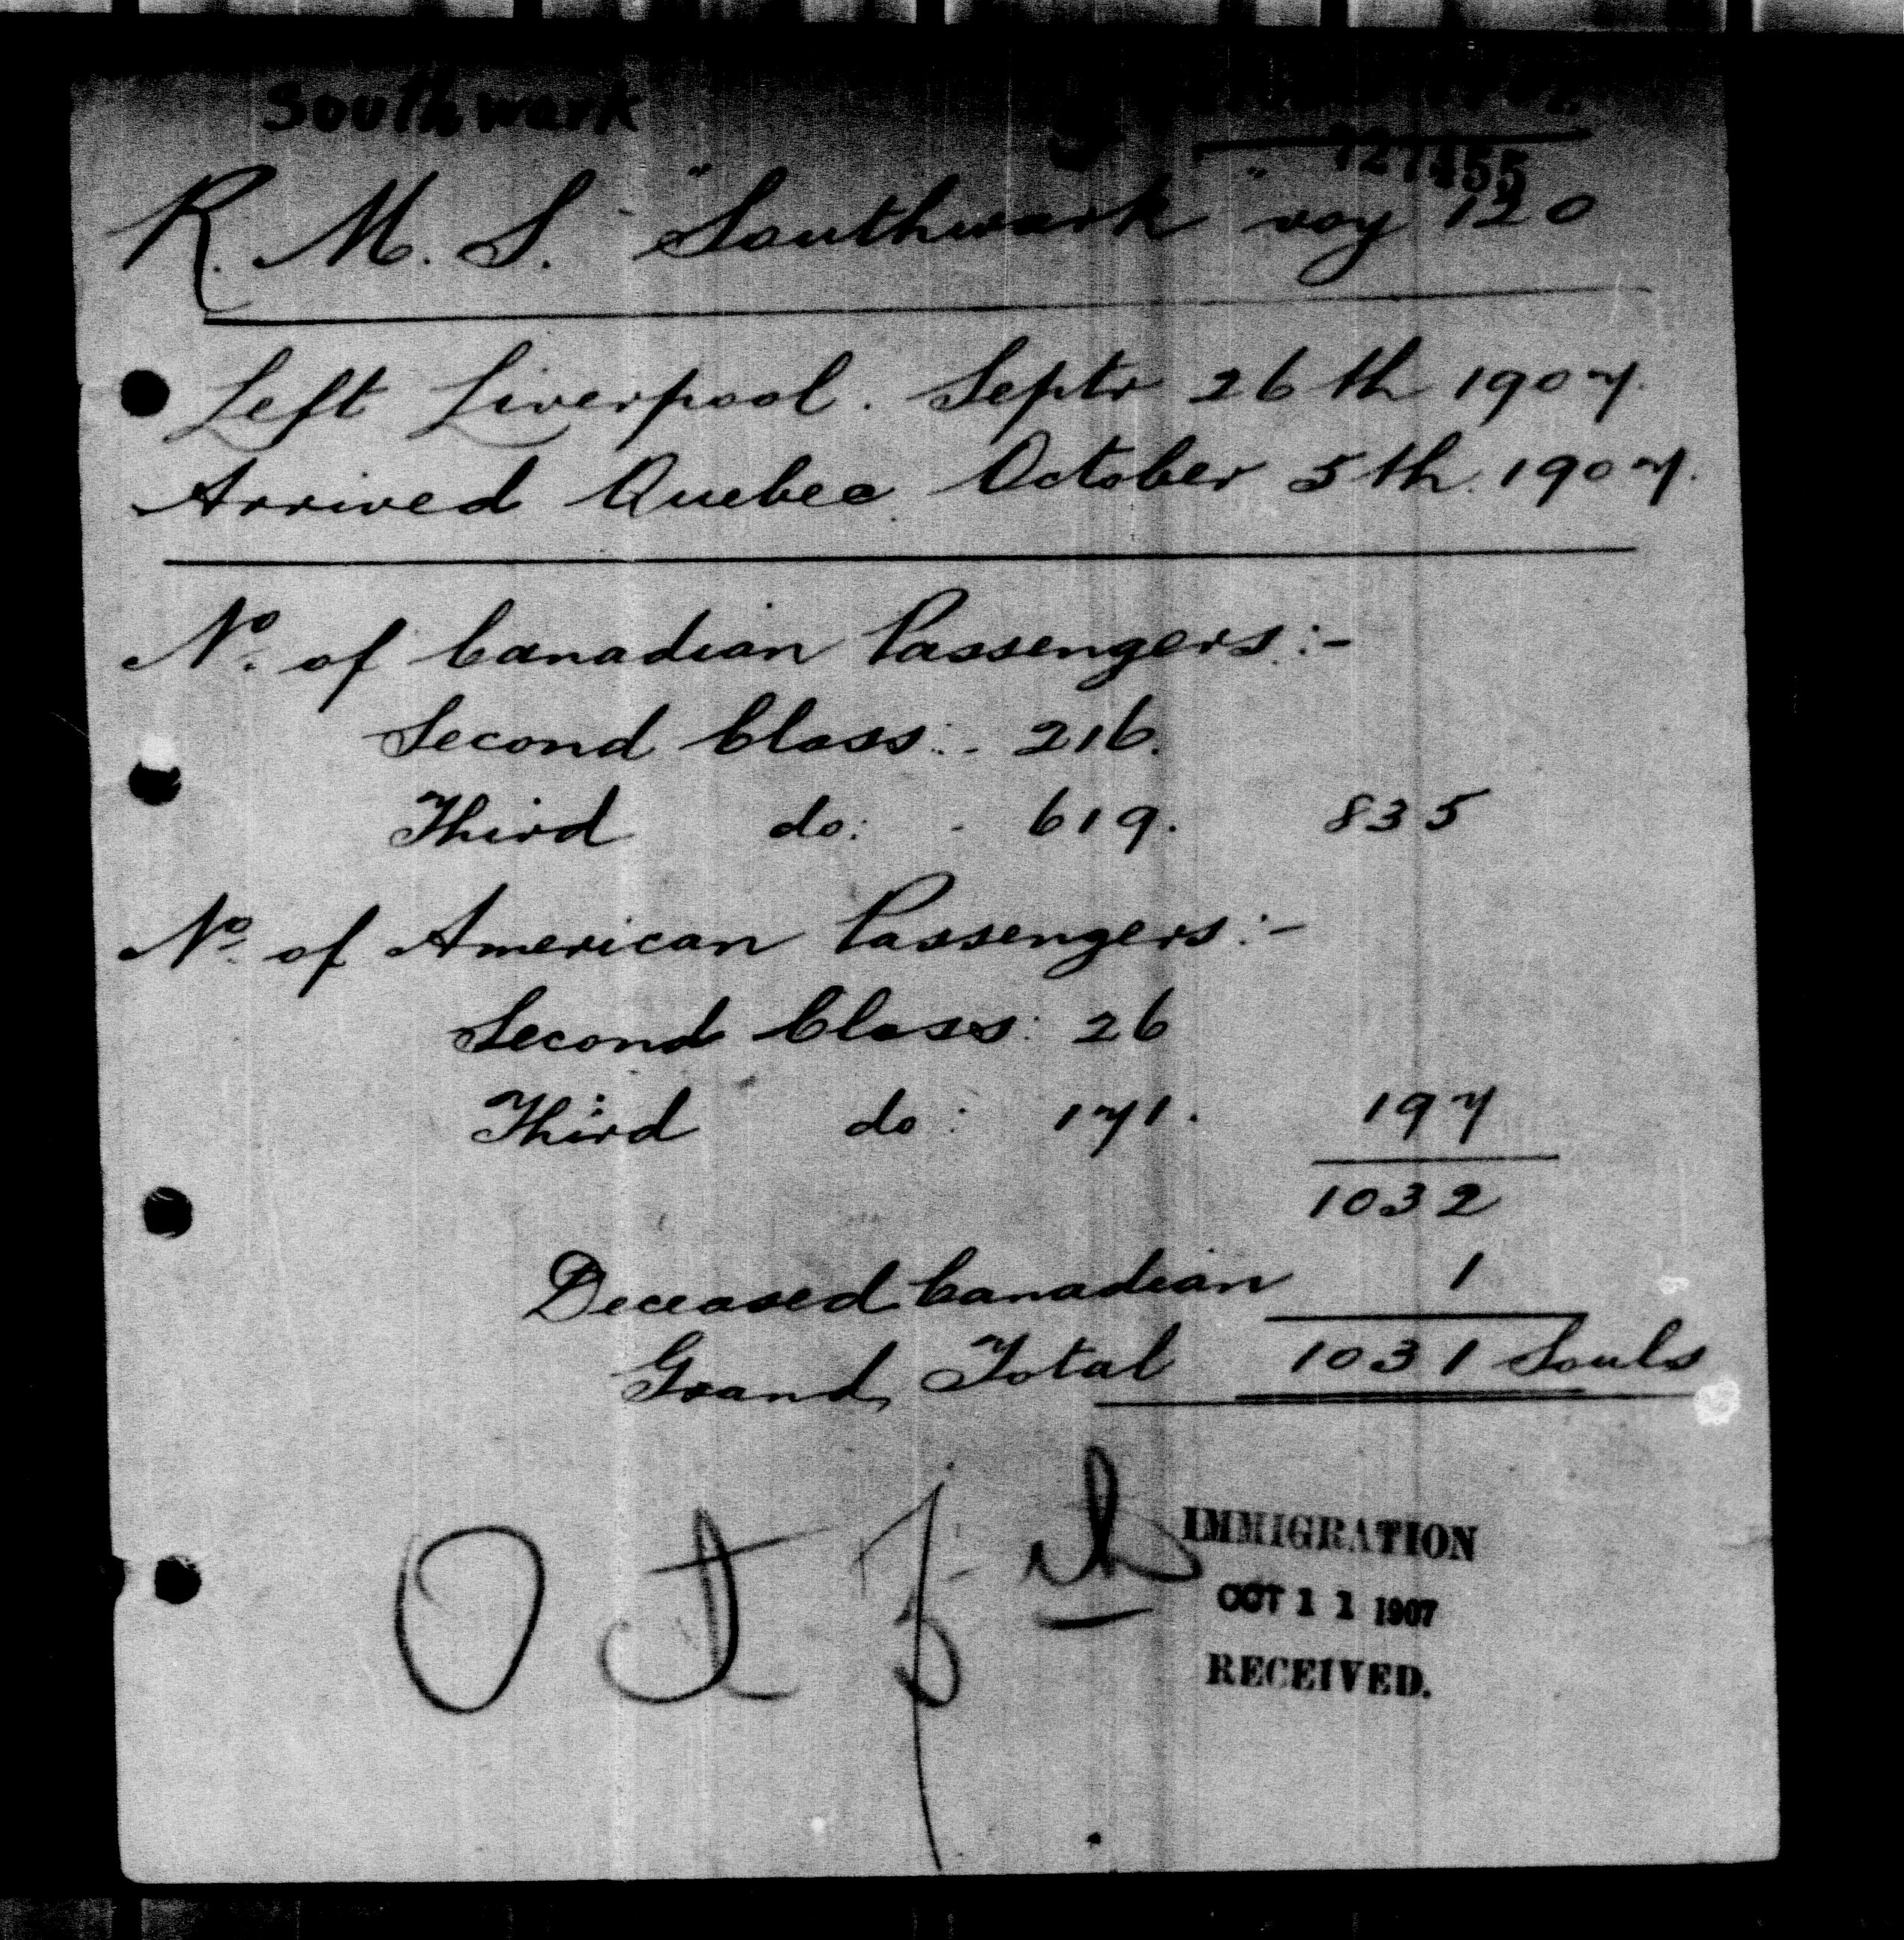 Southwark
727455
R. M. S. "Southwark" voy 120
Left Liverpool. Septr 26th 1907.
Arrived Quebec October 5th. 1907.
No. of Canadian Passengers:-
Second Class:- 216.
Third do: - 619. 835
No. of American Passengers:-
Second Class: 26
Third do: 171. 197
1032
Deceased Canadian 1
Grand Total 1031 Souls
Oct 5th
IMMIGRATION
OCT 11 1907
RECEIVED.